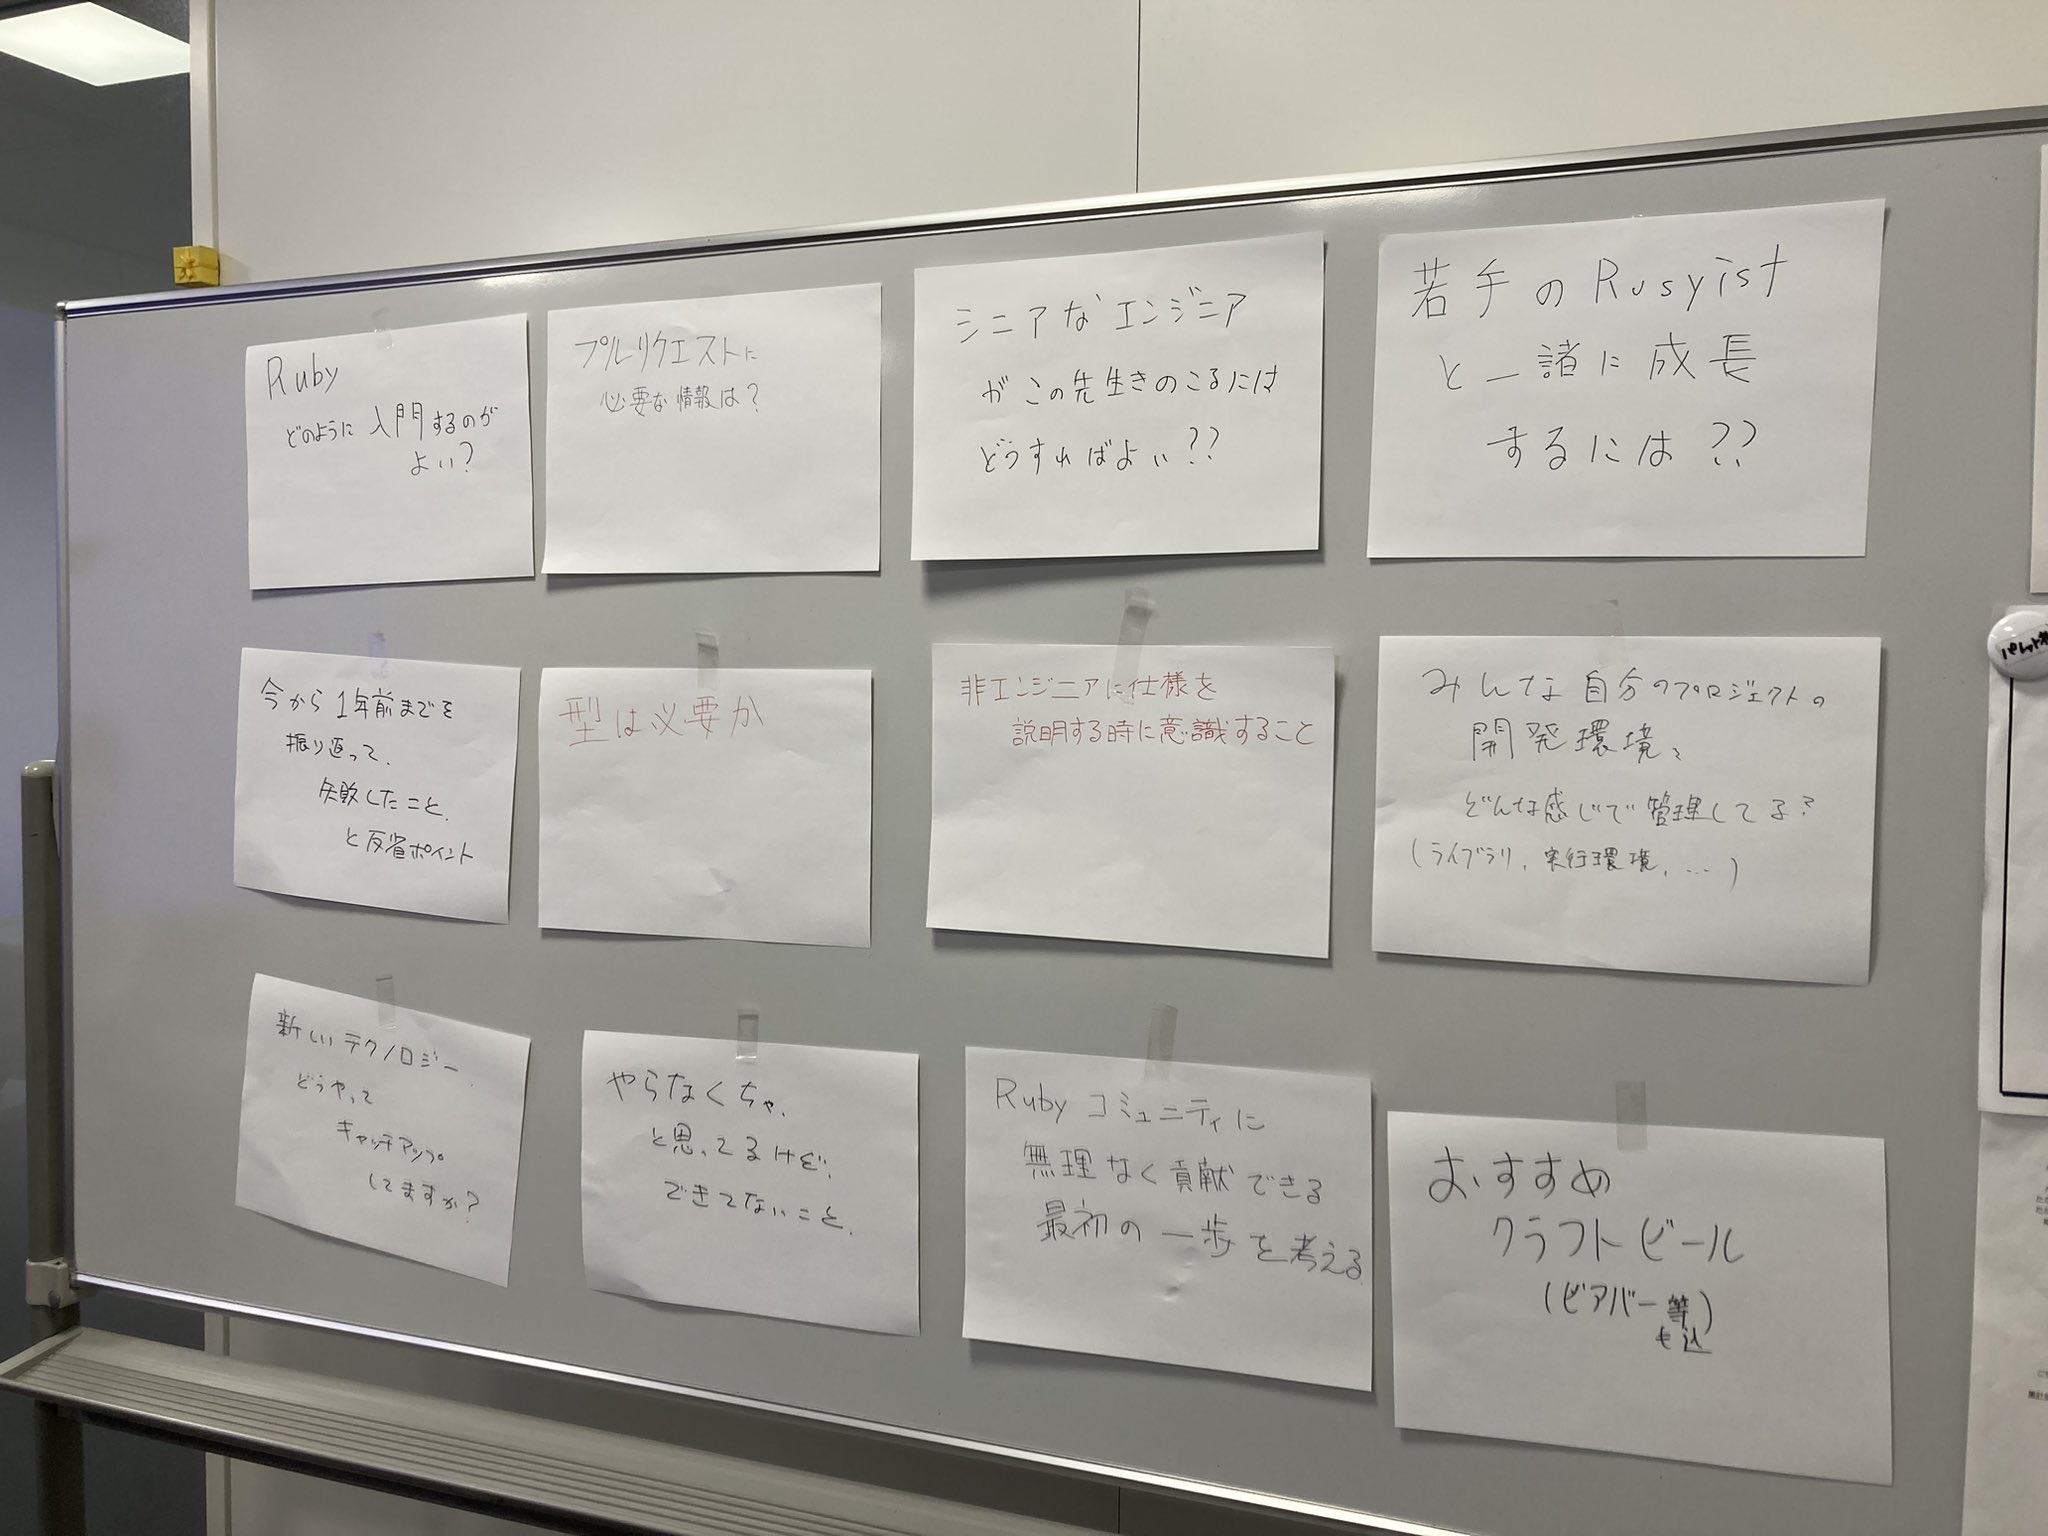 Ruby
どのように入門するのが
よい?
プルリクエストに
必要な情報は?
シニアなエンジニア
がこの先生きのこるには
どうすればよい??
若手のRusyist
と一諸に成長
するには??
今から1年前までを
振り返って、
失敗したこと、
と反省ポイント
型は必要か
非エンジニアに仕様を
説明する時に意識すること
みんな自分のプロジェクトの
開発環境、
どんな感じで管理してる?
(ライブラリ, 実行環境, ...)
新しいテクノロジー
どうやって
キャッチアップ
してますか?
やらなくちゃ、
と思ってるけど、
できてないこと、
Ruby コミュニティに
無理なく貢献できる
最初の一歩を考える
おすすめ
クラフトビール
(ビアバー等)
も込